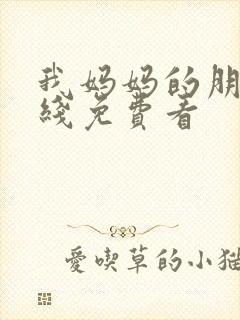 我妈妈的朋
綫免費看
愛喫草的小猫